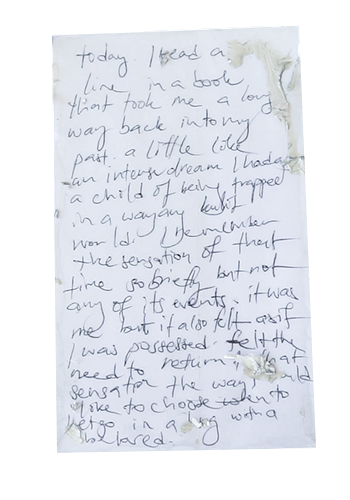 today I read a
line in a book
that took me a long
way back into my
past. a little like
an intense dream I had as
a child of being trapped
in a way any
world. I remember
the sensation of that
time so briefly but not
any of its events. it was
me but it also felt as if
I was possessed. felt the
need to return, that
sensation the way I would
like to choose when to
let go in a hug with a
beloved.